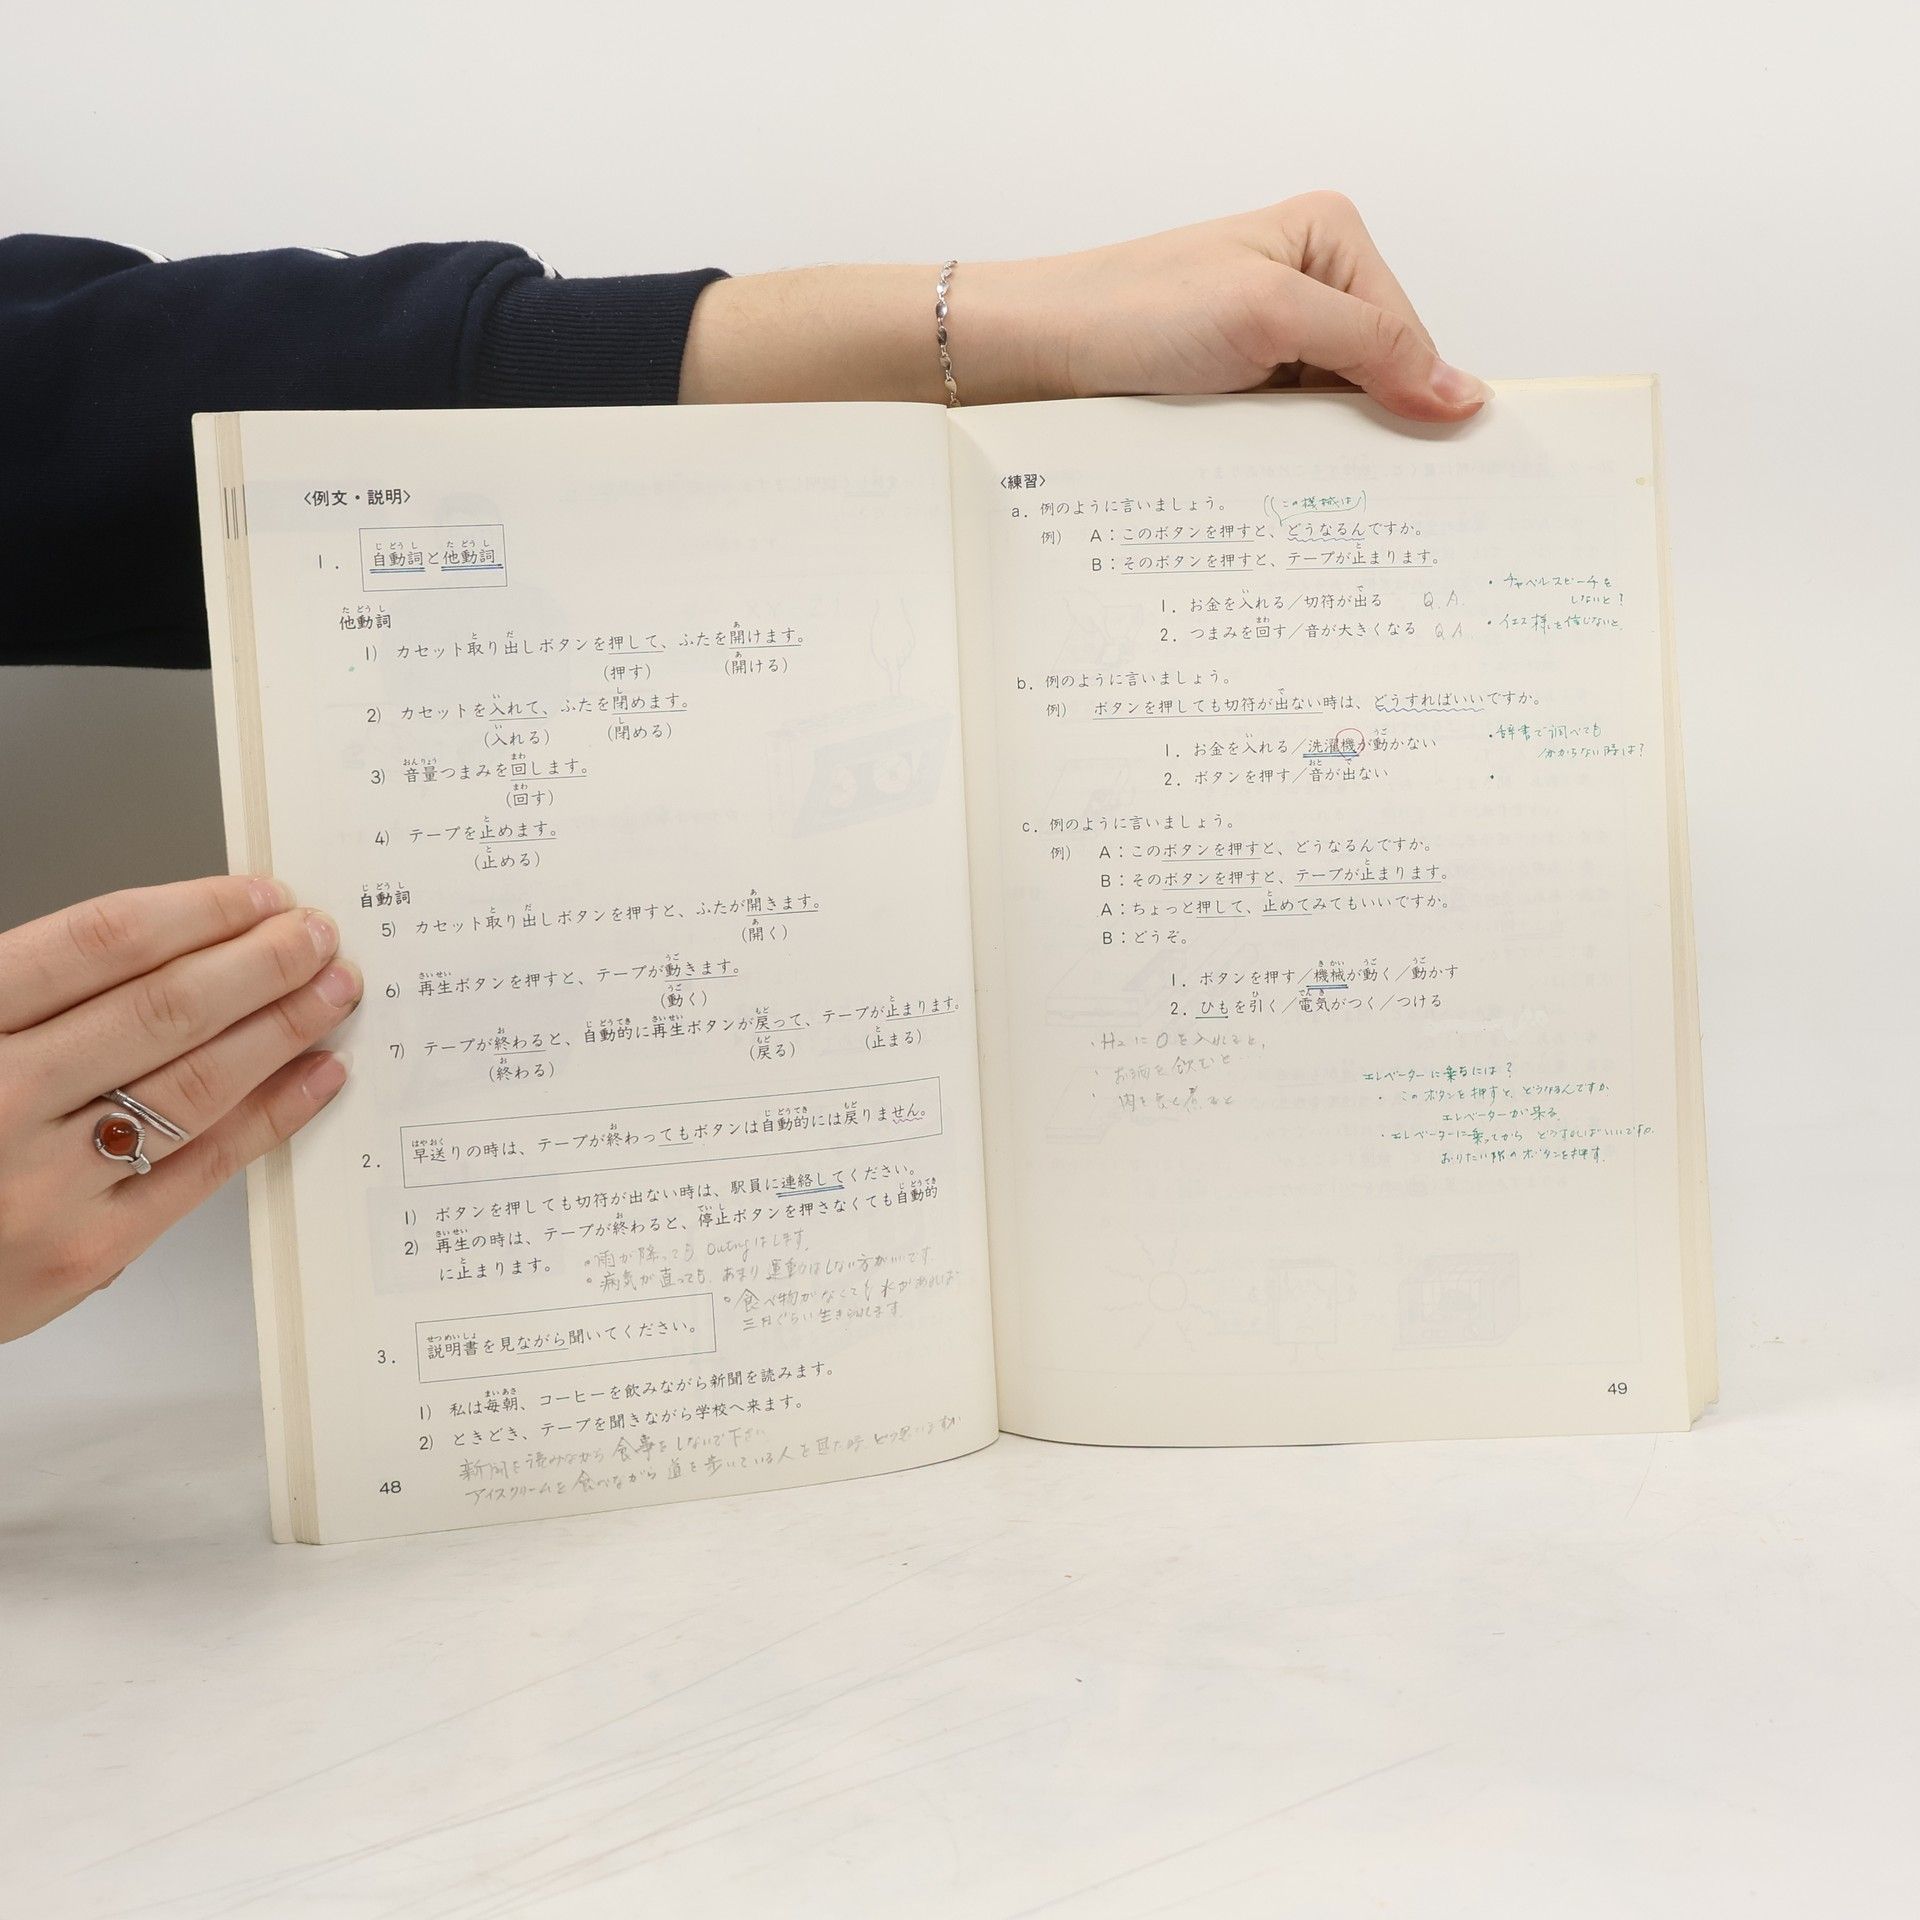 〈例文・説明〉
1. 自動詞と他動詞
他動詞
1) カセット取り出しボタンを押して、ふたを開けます。
(押す) (開ける)
2) カセットを入れて、ふたを閉めます。
(入れる) (閉める)
3) 音量つまみを回します。
(回す)
4) テープを止めます。
(止める)
自動詞
5) カセット取り出しボタンを押すと、ふたが開きます。
(開く)
6) 再生ボタンを押すと、テープが動きます。
(動く)
7) テープが終わると、自動的に再生ボタンが戻って、テープが止まります。
(終わる) (戻る) (止まる)
2. 早送りの時は、テープが終わってもボタンは自動的には戻りません。
1) ボタンを押しても切符が出ない時は、駅員に連絡してください。
2) 再生の時は、テープが終わると、停止ボタンを押さなくても自動的
に止まります。
・雨が降っても Outingはします。
・病気が直っても、あまり運動はしない方がいいです。
・食べ物がなくても水があれば
三月ぐらい生きられます
3. 説明書を見ながら聞いてください。
1) 私は毎朝、コーヒーを飲みながら新聞を読みます。
2) ときどき、テープを聞きながら学校へ来ます。
新聞を読みながら食事をしないで下さい
アイスクリームを食べながら道を歩いている人を見た時、どう思いますか
48
〈練習〉
a. 例のように言いましょう。 (この機械は)
例) A:このボタンを押すと、どうなるんですか。
B:そのボタンを押すと、テープが止まります。
1. お金を入れる/切符が出る Q.A.
2. つまみを回す/音が大きくなる Q.A
・チャペルスピーチを
しないと?
・イエス様を信じないと
b. 例のように言いましょう。
例) ボタンを押しても切符が出ない時は、どうすればいいですか。
1. お金を入れる/洗濯機が動かない
2. ボタンを押す/音が出ない
・辞書で調べても
分からない時は?
c. 例のように言いましょう。
例) A:このボタンを押すと、どうなるんですか。
B:そのボタンを押すと、テープが止まります。
A:ちょっと押して、止めてみてもいいですか。
B:どうぞ。
1. ボタンを押す/機械が動く/動かす
2. ひもを引く/電気がつく/つける
・H₂にOを入れると,
・お酒を飲むと…
・肉を長く煮ると
エレベーターに乗るには?
・このボタンを押すと、どうなるんですか
エレベーターが来る
・エレベーターに乗ってから どうすればいいですか.
おりたい階のボタンを押す.
49